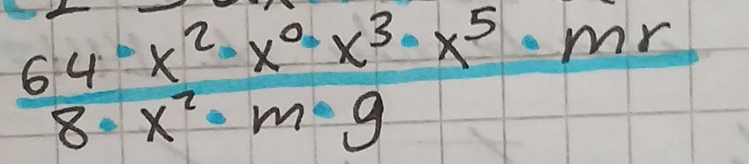 64 · x² · x⁰ · x³ · x⁵ · mr
8 · x² · m · g